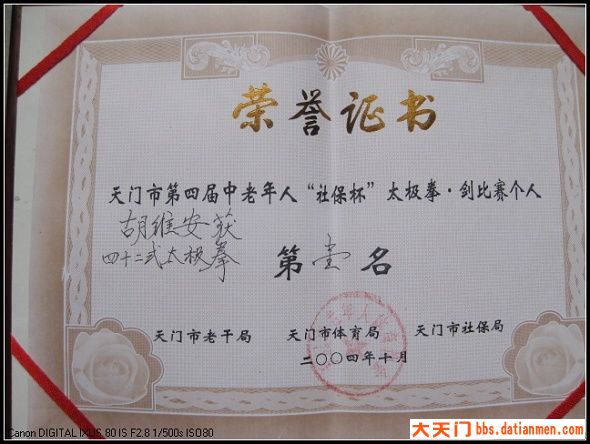 荣誉证书
天门市第四届中老年人“社保杯”太极拳·剑比赛个人
胡维安获
四十二式太极拳 第壹名
天门市老干局 天门市体育局 天门市社保局
二〇〇四年十月
Canon DIGITAL IXUS 80 IS F2.8 1/500s ISO80
大天门 bbs.datianmen.com